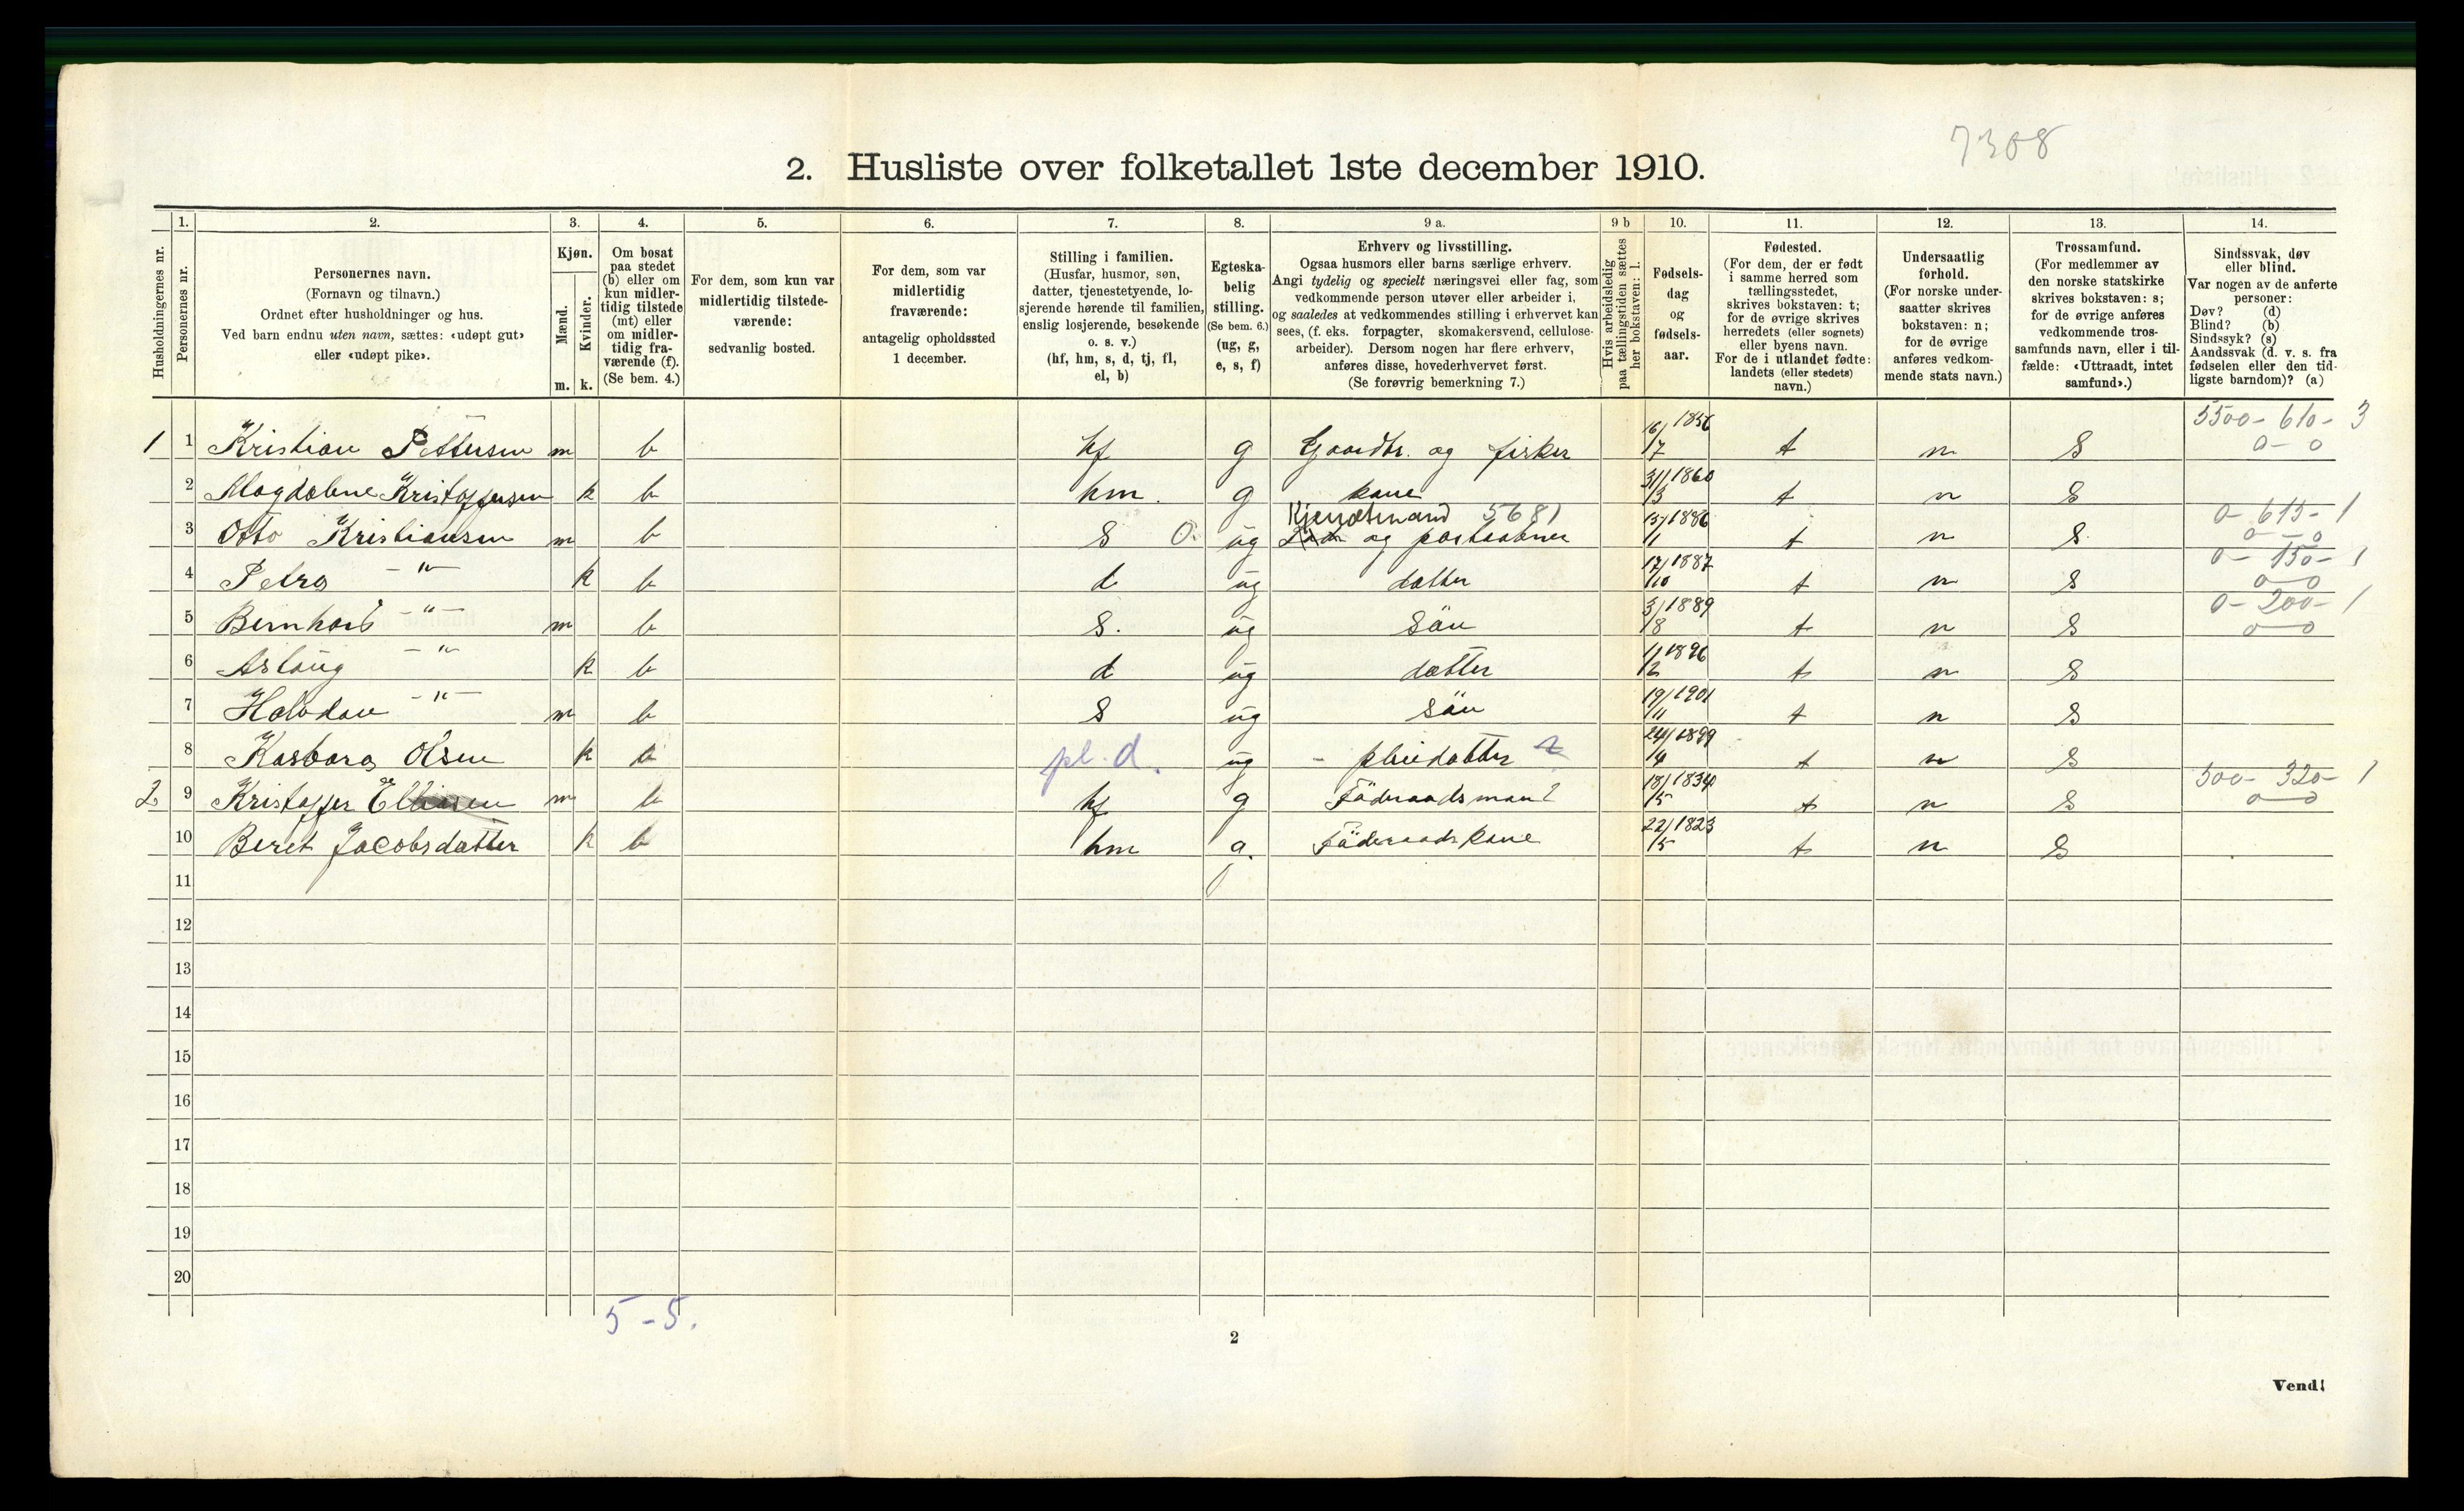 7308
2. Husliste over folketallet 1ste december 1910.
Husholdningernes nr.
1. Personernes nr.
2. Personernes navn.
(Fornavn og tilnavn.)
Ordnet efter husholdninger og hus.
Ved barn endnu uten navn, sættes: «udøpt gut»
eller «udøpt pike».
3. Kjøn.
Mænd. m.
Kvinder. k.
4. Om bosat
paa stedet
(b) eller om
kun midler-
tidig tilstede
(mt) eller
om midler-
tidig fra-
værende (f).
(Se bem. 4.)
5. For dem, som kun var
midlertidig tilstede-
værende:
sedvanlig bosted.
6. For dem, som var
midlertidig
fraværende:
antagelig opholdssted
1 december.
7. Stilling i familien.
(Husfar, husmor, søn,
datter, tjenestetyende, lo-
sjerende hørende til familien,
enslig losjerende, besøkende
o. s. v.)
(hf, hm, s, d, tj, fl,
el, b)
8. Egteska-
belig
stilling.
(Se bem. 6.)
(ug, g,
e, s, f)
9 a. Erhverv og livsstilling.
Ogsaa husmors eller barns særlige erhverv.
Angi tydelig og specielt næringsvei eller fag, som
vedkommende person utøver eller arbeider i,
og saaledes at vedkommendes stilling i erhvervet kan
sees, (f. eks. forpagter, skomakersvend, cellulose-
arbeider). Dersom nogen har flere erhverv,
anføres disse, hovederhvervet først.
(Se forøvrig bemerkning 7.)
9 b Hvis arbeidsledig
paa tællingstiden sættes
her bokstaven: l.
10. Fødsels-
dag
og
fødsels-
aar.
11. Fødested.
(For dem, der er født
i samme herred som
tællingsstedet,
skrives bokstaven: t;
for de øvrige skrives
herredets (eller sognets)
eller byens navn.
For de i utlandet fødte:
landets (eller stedets)
navn.)
12. Undersaatlig
forhold.
(For norske under-
saatter skrives
bokstaven: n;
for de øvrige
anføres vedkom-
mende stats navn.)
13. Trossamfund.
(For medlemmer av
den norske statskirke
skrives bokstaven: s;
for de øvrige anføres
vedkommende tros-
samfunds navn, eller i til-
fælde: «Uttraadt, intet
samfund».)
14. Sindssvak, døv
eller blind.
Var nogen av de anførte
personer:
Døv? (d)
Blind? (b)
Sindssyk? (s)
Aandssvak (d. v. s. fra
fødselen eller den tid-
ligste barndom)? (a)
5500 - 610 - 3
1 1 Kristian Pettersen m b hf g Gaardbr. og fisker 16/7 1856 t n S 0 - 0
2 Magdalene Kristoffersen k b hm. g kone 31/3 1860 t n S
Kjøpmand 5681 0 - 615 - 1
3 Otto Kristiansen m b S O. ug og postaabner 15/1 1886 t n S. 0 - 0
0 - 150 - 1
4 Petra -"- k b d ug datter 17/10 1887 t n S 0 - 0
0 - 200 - 1
5 Bernhard -"- m b S. ug Sön 3/8 1889 t n S 0 - 0
6 Aslaug -"- k b d ug datter 11/2 1896 t n S
7 Halvdan -"- m b S ug Sön 19/11 1901 t n S
8 Kasbara Olsen k b pl. d. ug - pleiedatter 24/4 1899 t n S
500 - 320 - 1
2 9 Kristoffer Elliasen m b hf g Föderaadsmand 18/5 1834 t n S 0 - 0
10 Beret Jacobsdatter k b hm g. Föderaadskone 22/5 1823 t n S
11
12
13
14
15
16
17
18
19
20
5 - 5.
2
Vend!